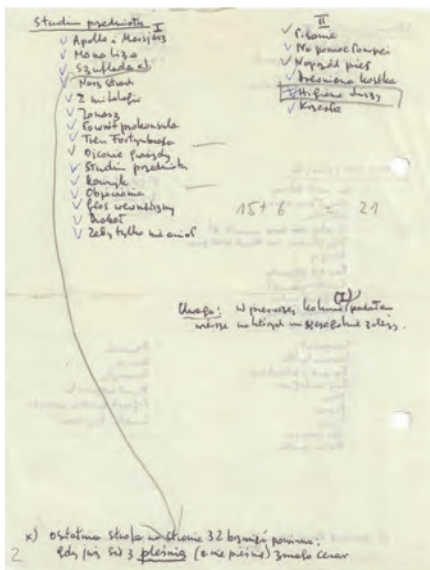 Studium przedmiotu I
Apollo i Marsjasz
Mona Liza
Szuflada x)
Nasz strach
Z mitologii
Jonasz
Powrót prokonsula
Tren Fortynbrasa
Ojcowie gwiazdy
Studium przedmiotu
Kamyk
Objawienie
Głos wewnętrzny
Diabeł
Żeby tylko nie anioł
II
Pisanie
Na pomoc
Naprzód pies
Drewniana kostka
Higiena duszy
Krzesła
15 + 6 = 21
Uwaga: W pierwszej kolumnie (I) podałem
wiersze na których mi szczególnie zależy.
x) ostatnia strofa na stronie 32 brzmieć powinna:
gdy już się z pleśnią (a nie pieśnią)
2